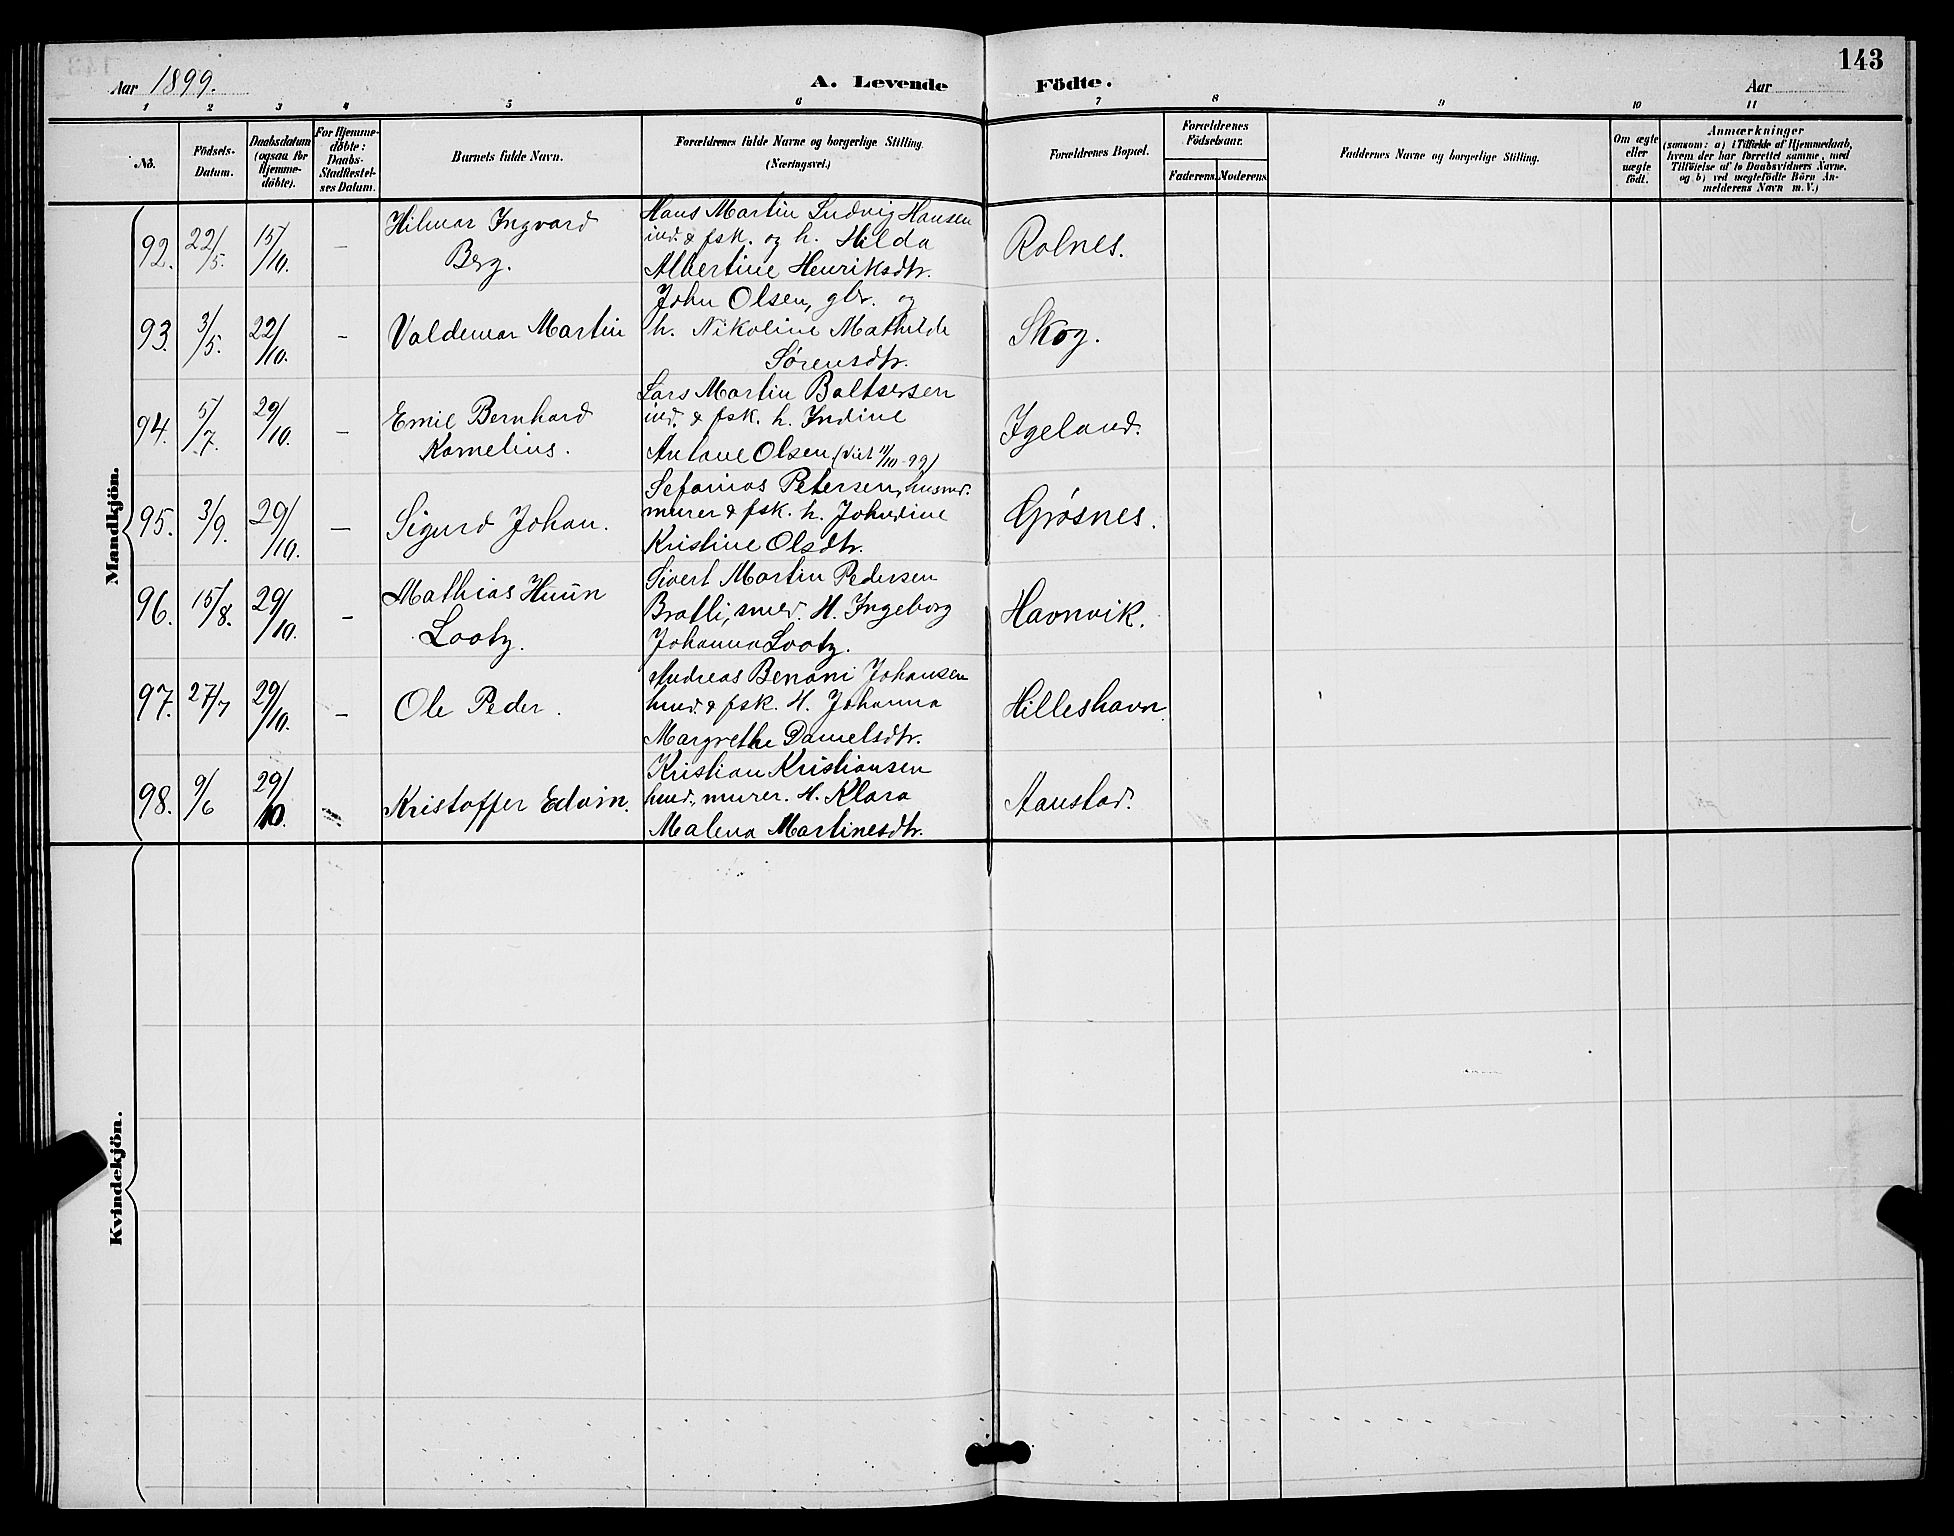 143
Aar 1899. A. Levende Födte. Aar
1 2 3 4 5 6 7 8 9 10 11
No. Födsels-Datum. Daabsdatum (ogsaa for Hjemme-döbte). For Hjemme-döbte: Daabs-Stadfæstel-ses Datum. Barnets fulde Navn. Forældrenes fulde Navne og borgerlige Stilling. (Næringsvei.) Forældrenes Bopæl. Forældrenes Födselsaar. Faderens. Moderens. Faddernes Navne og borgerlige Stilling. Om ægte eller uægte födt. Anmærkninger (saasom: a) i Tilfælde af Hjemmedaab, hvem der har forrettet samme, med Tilföielse af to Daabsvidners Navne, og b) ved uægtefödte Börn An-melderens Navn m. V.)
Mandkjön.
92. 22/5. 15/10. — Hilmar Ingvard Berg. Hans Martin Ludvig Hansen
ind. & fsk. og h. Hilda
Albertine Henriksdtr. Rolnes.
93. 3/5. 22/10. — Valdemar Martin John Olsen, gbr. og
h. Nikoline Mathilde
Sørensdtr. Skog.
94. 5/7. 29/10. — Emil Bernhard
Kornelius. Lars Martin Baltsersen
ind. & fsk. h. Indine
Antone Olsen (viet 11/10-99) Igeland.
95. 3/9. 29/10. — Sigurd Johan. Sefanias Petersen, husmd.
murer & fsk. h. Johndine
Kristine Olsdtr. Grøsnes.
96. 15/8. 29/10. — Mathias Huun
Lootz. Sivert Martin Pedersen
Bratli, smed. H. Ingeborg
Johanna Lootz. Havnvik.
97. 27/7 29/10. — Ole Peder. Andreas Benoni Johansen
hmd. & fsk. H. Johanna
Margrethe Danielsdtr. Hilleshavn
98. 9/6 29/10. Kristoffer Edvin. Kristian Kristiansen
hmd., murer. H. Klara
Malena Martinesdtr. Aanstad.
Kvindekjön.